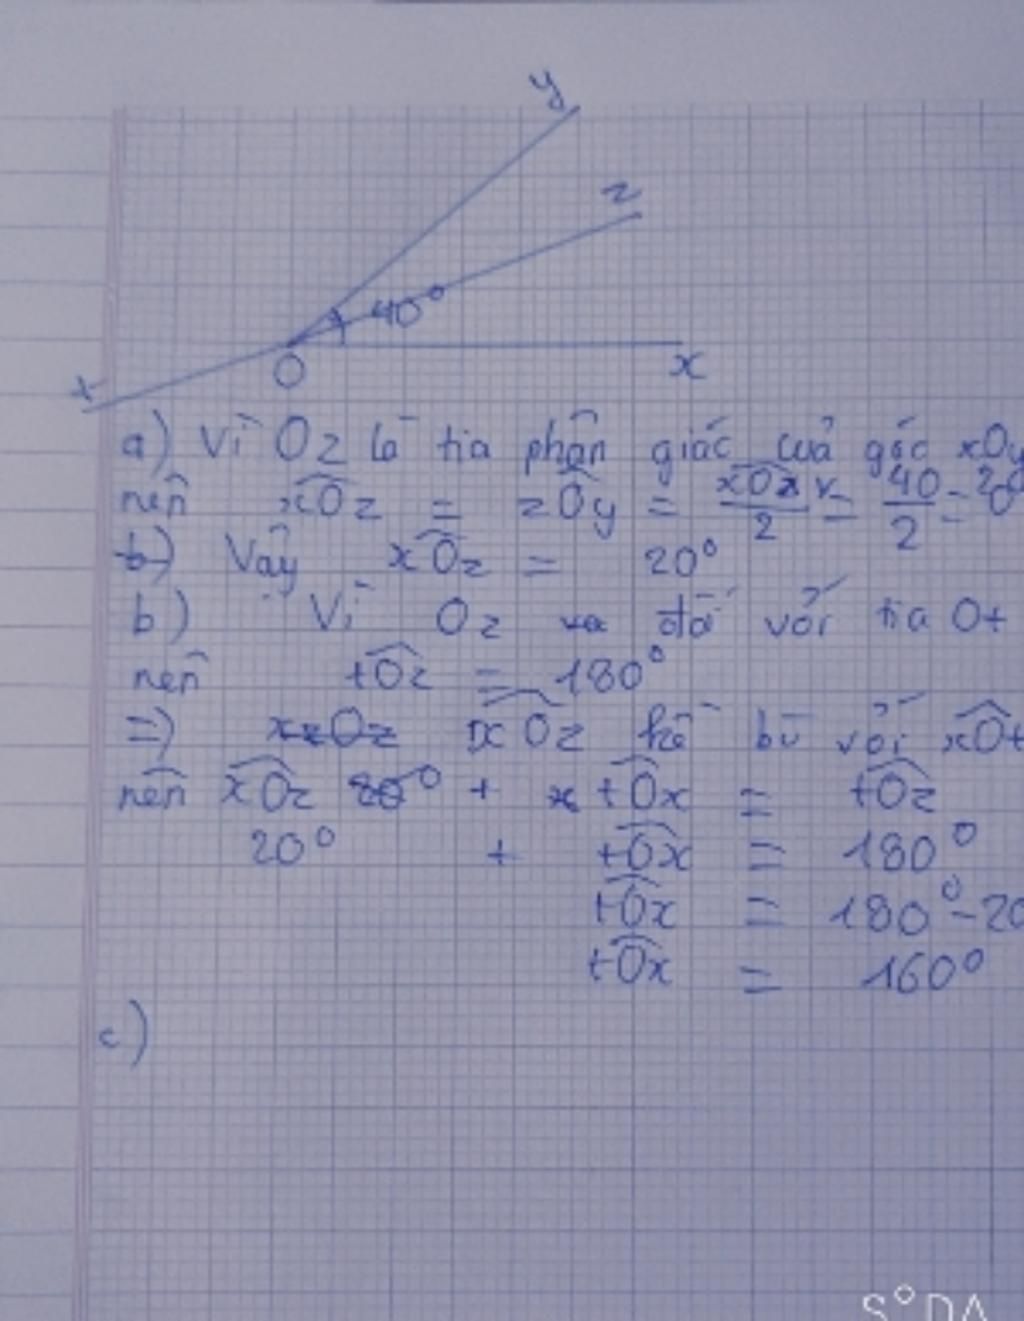 y
z
40°
x
O
t
a) Vì Oz là tia phân giác của góc xOy
nên xOz = zOy = xOy/2 = 40/2 = 20
b) Vậy xOz = 20°
b) Vì Oz đối với tia Ot
nên tOz = 180°
=) xzOz xOz kề bù với xOt
nên xOz 80° + x tOx = tOz
20° + tOx = 180°
tOx = 180° - 20
tOx = 160°
c)
S°DA